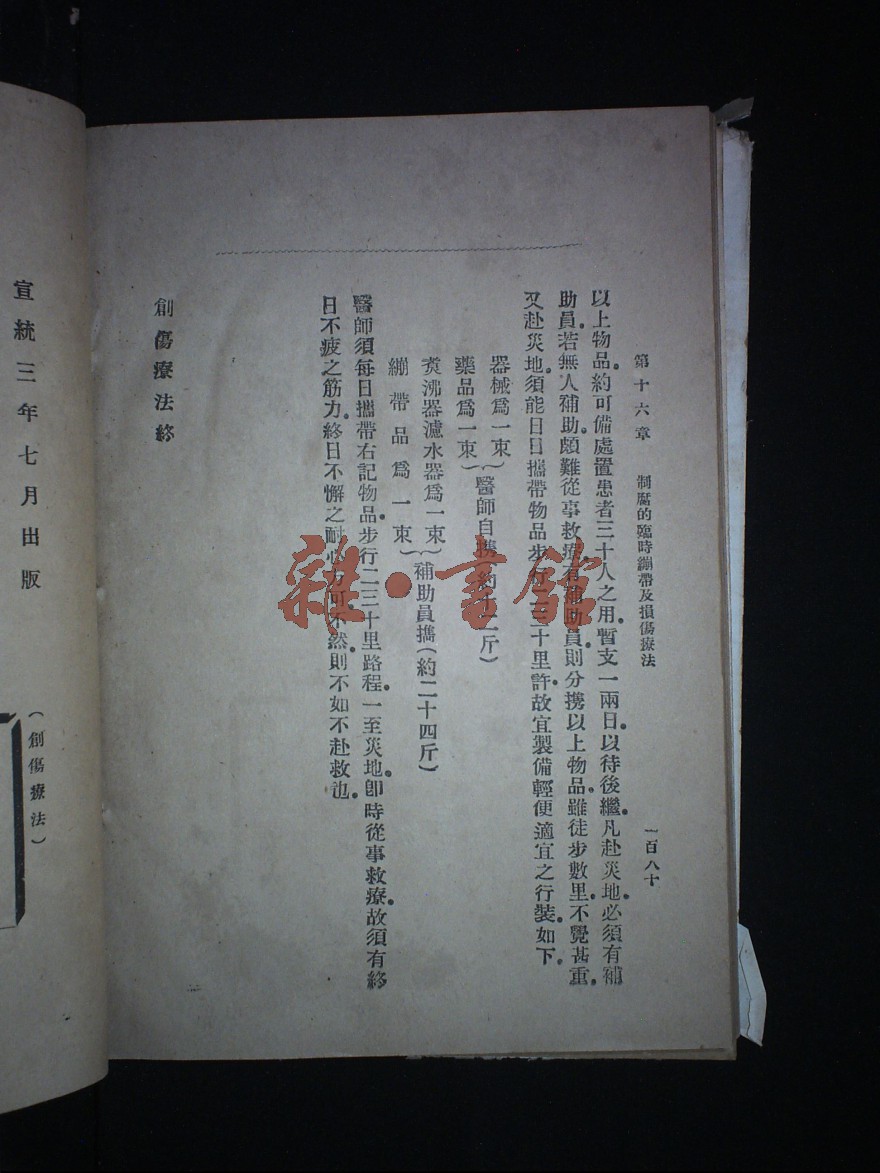 第十六章　制腐的臨時繃帶及損傷療法　一百八十
以上物品。約可備處置患者三十人之用。暫支一兩日。以待後繼。凡赴災地。必須有補
助員。若無人補助。頗難從事救療。有補助員。則分携以上物品。雖徒步數里。不覺甚重。
又赴災地。須能日日携帶物品。步行二三十里許。故宜製備輕便適宜之行裝。如下。
器械爲一束
藥品爲一束｝醫師自携(約十二斤)
煑沸器濾水器爲一束
繃帶品爲一束｝補助員携(約二十四斤)
醫師須每日携帶右記物品。步行二三十里路程。一至災地。卽時從事救療。故須有終
日不疲之筋力。終日不懈之耐心力可。不然。則不如不赴救也。
創傷療法終
(創傷療法)
宣統三年七月出版
雜·書館